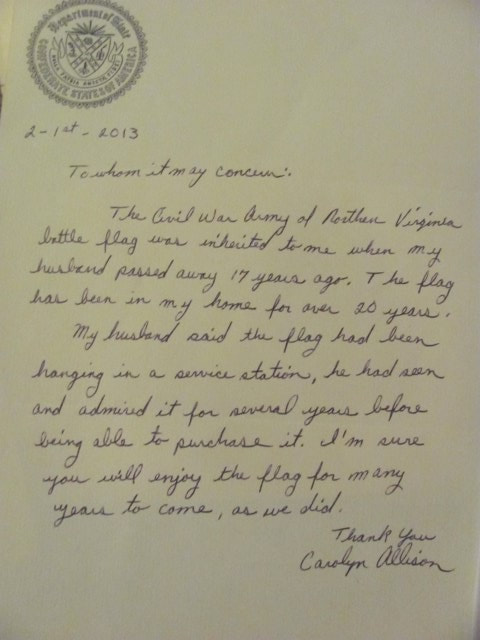 Department of State
CONFEDERATE STATES OF AMERICA
2-1st-2013
To whom it may concern:
The Civil War Army of Northen Virginia
battle flag was inherited to me when my
husband passed away 17 years ago. The flag
has been in my home for over 20 years.
My husband said the flag had been
hanging in a service station, he had seen
and admired it for several years before
being able to purchase it. I'm sure
you will enjoy the flag for many
years to come, as we did.
Thank You
Carolyn Allison